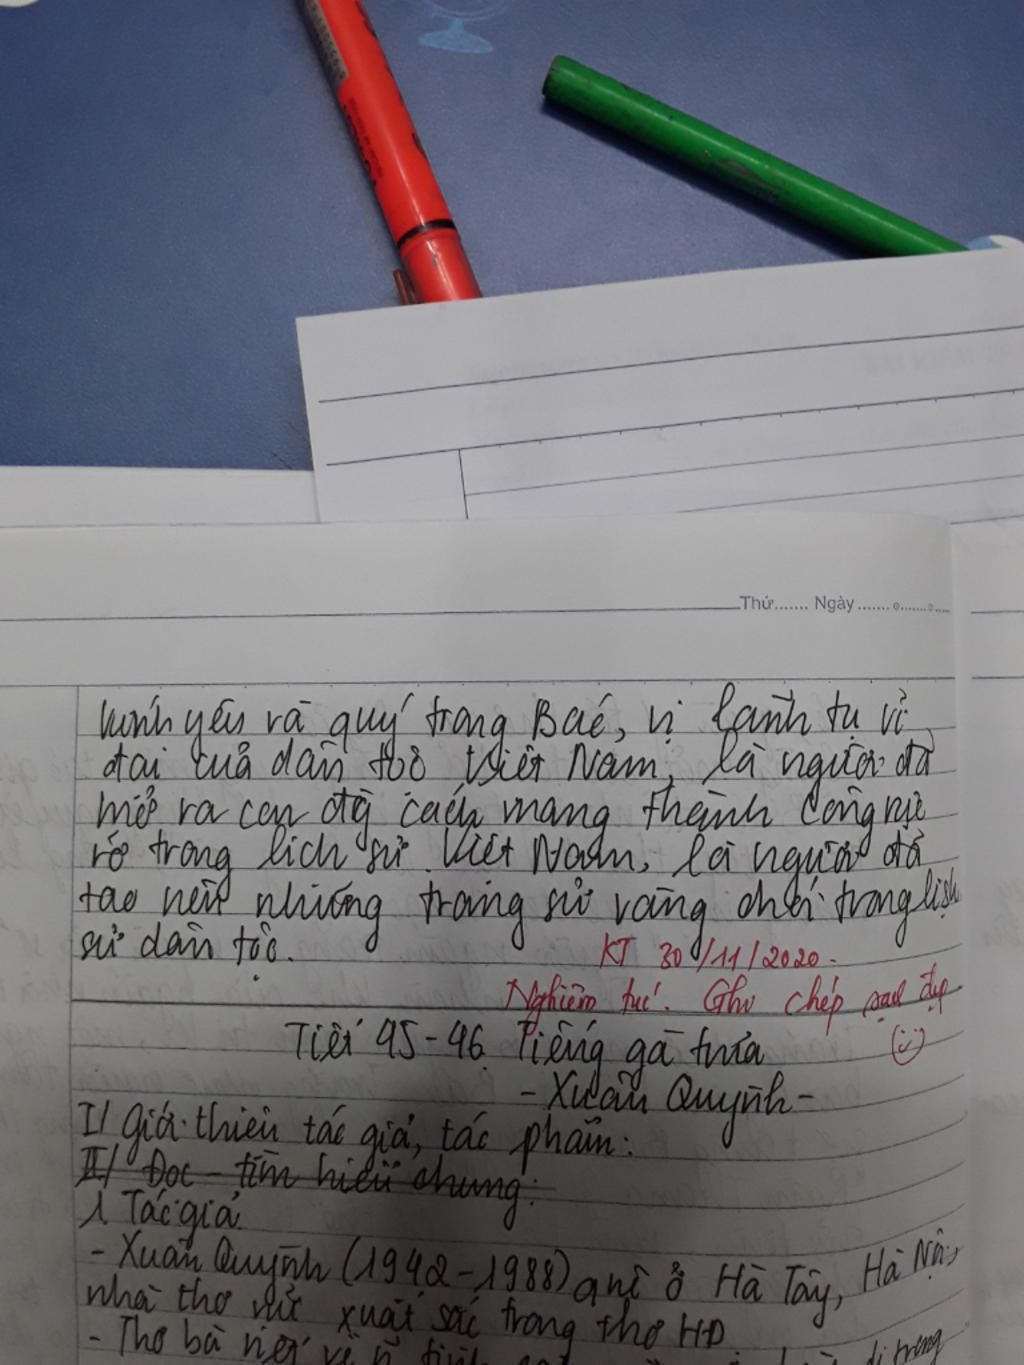 Thứ....... Ngày.......
kính yêu và quý trọng Bác, vị lãnh tụ vĩ
đại của dân tộc Việt Nam, là người đã
mở ra con đg cách mạng thành công rực
rỡ trong lịch sử Việt Nam, là người đã
tạo nên những trang sử vàng chói trong lịch
sử dân tộc.
KT 30/11/2020.
Nghiêm túc. Ghi chép sạch đẹp
Tiết 45-46 Tiếng gà trưa
- Xuân Quỳnh -
I/ Giới thiệu tác giả, tác phẩm:
II/ Đọc - tìm hiểu chung:
1. Tác giả
- Xuân Quỳnh (1942-1988) quê ở Hà Tây, Hà Nội,
nhà thơ nữ xuất sắc trong thơ HĐ
- Thơ bà